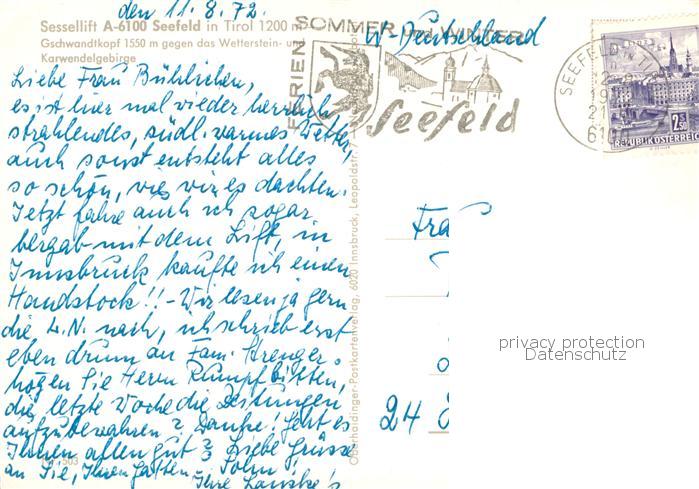 den 11.8.72.
Sessellift A-6100 Seefeld in Tirol 1200 m
Gschwandtkopf 1550 m gegen das Wetterstein- und
Karwendelgebirge
Liebe Frau Bühlichen,
es ist hier mal wieder herrlich
strahlendes, südl. warmes Wetter,
auch sonst entsteht alles
so schön, wie wir es dachten.
Jetzt fahre auch ich sogar
bergab mit dem Lift, in
Innsbruck kaufte ich einen
Handstock!! - Wir lesen ja gern
die L.N. nach, ich schrieb erst
eben drum an Fam. Strenger.
Mögen Sie Herrn Rumpf bitten,
die letzte Woche die Zeitungen
aufzubewahren? Danke! Geht es
Ihnen allen gut? Liebe Grüsse
an Sie, Ihren Gatten, Sohn!
Ihre
503
Oberhaidinger-Postkartenverlag, 6020 Innsbruck, Leopoldstr. 7
FERIEN SOMMER UND WINTER
Seefeld
W. Deutschland
SEEFELD
REPUBLIK ÖSTERREICH
2.50
Frau
24
privacy protection
Datenschutz